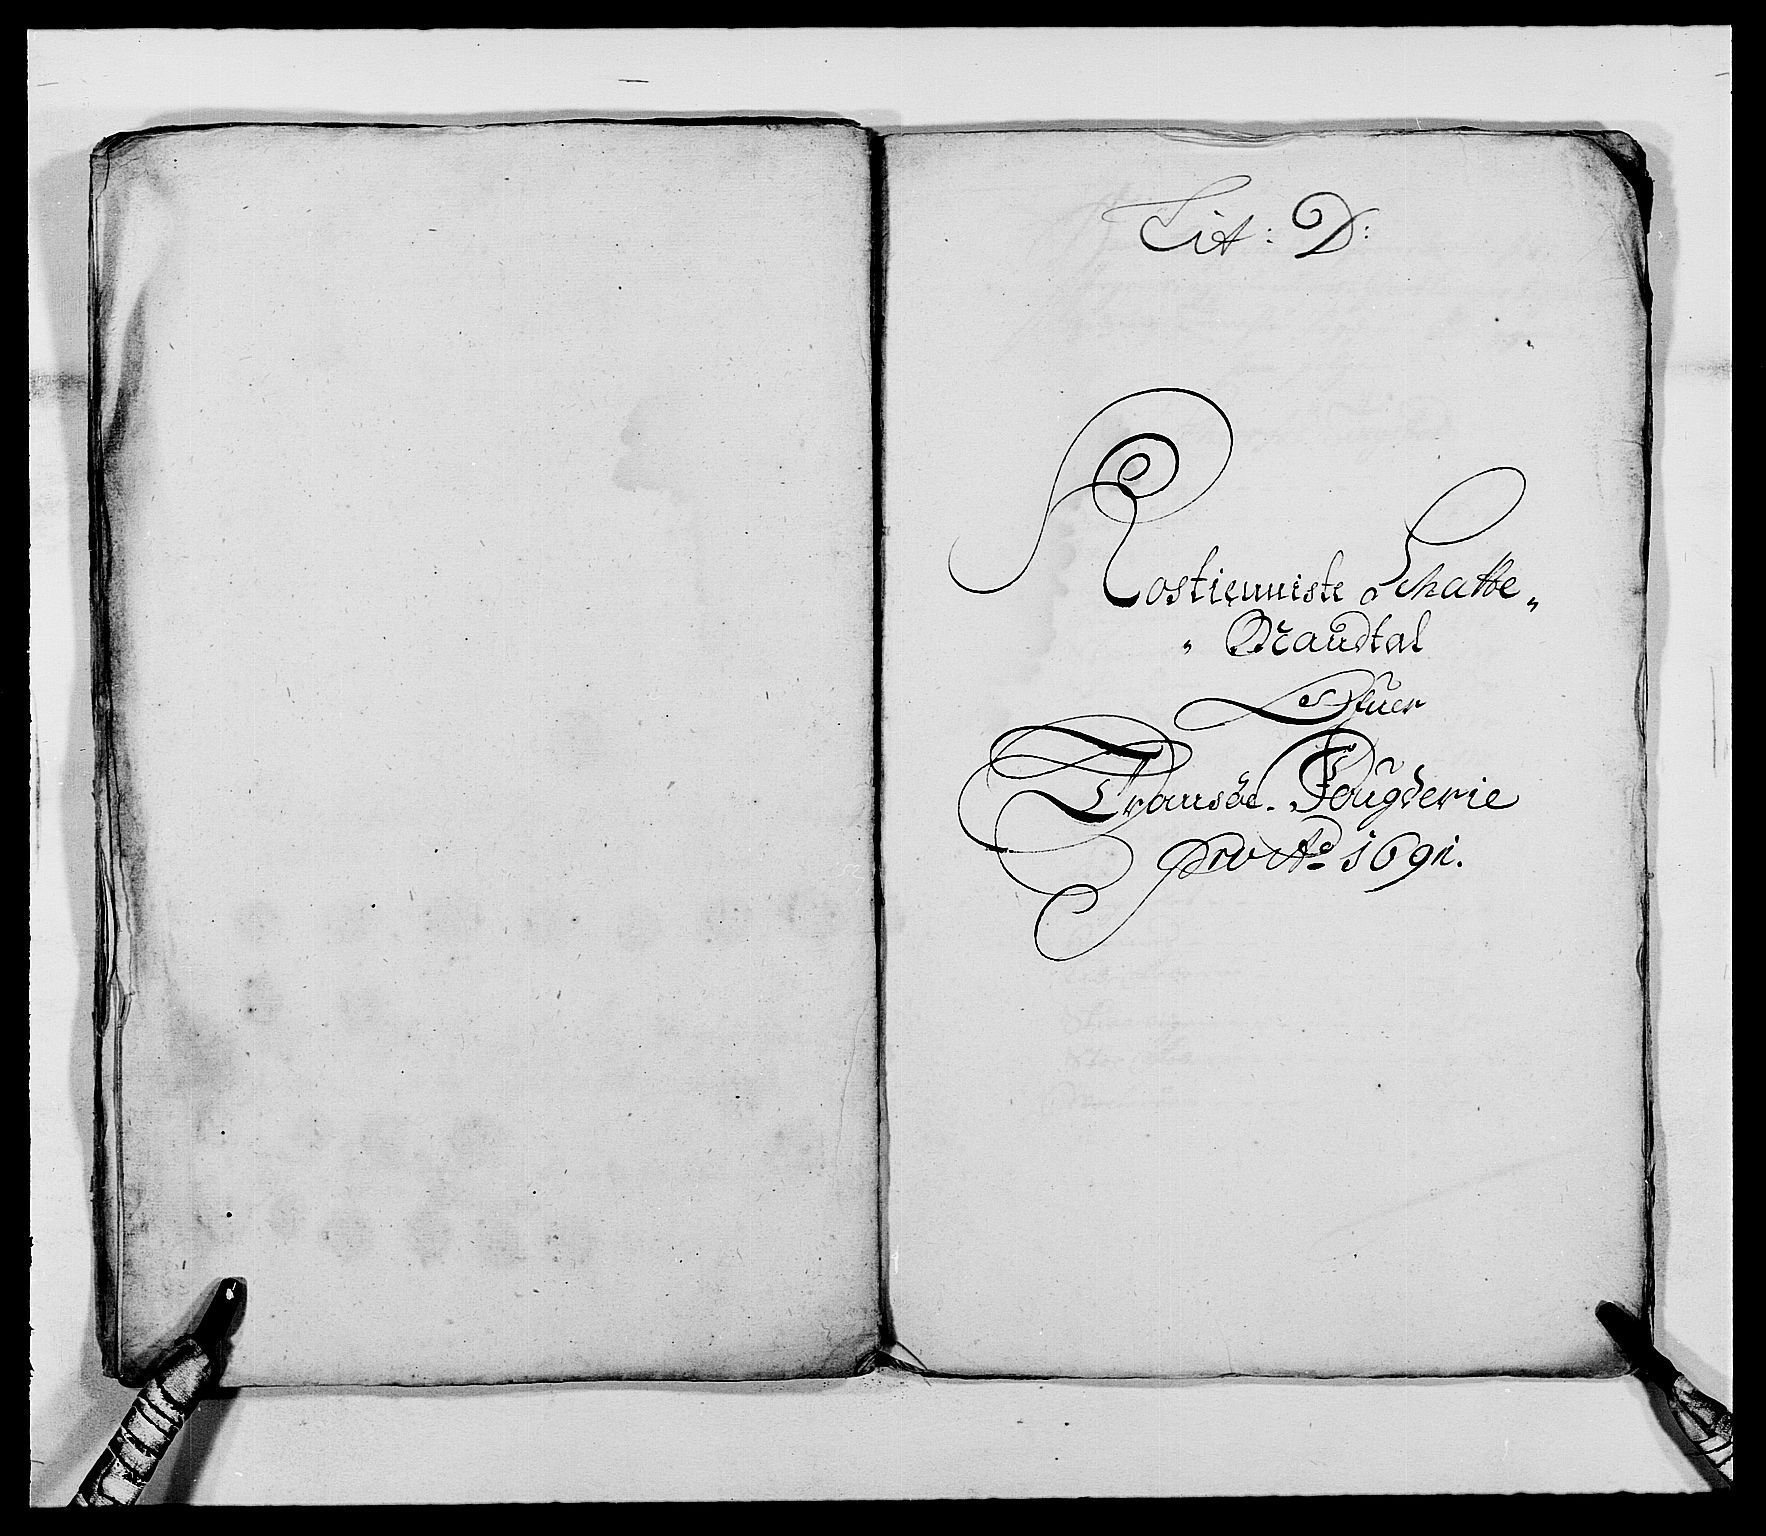 Lit: D:
Rostienniste Schatte„
„ Mandtal
Ofuer
Tromsøe Fougderie
Pro Ao 1691.